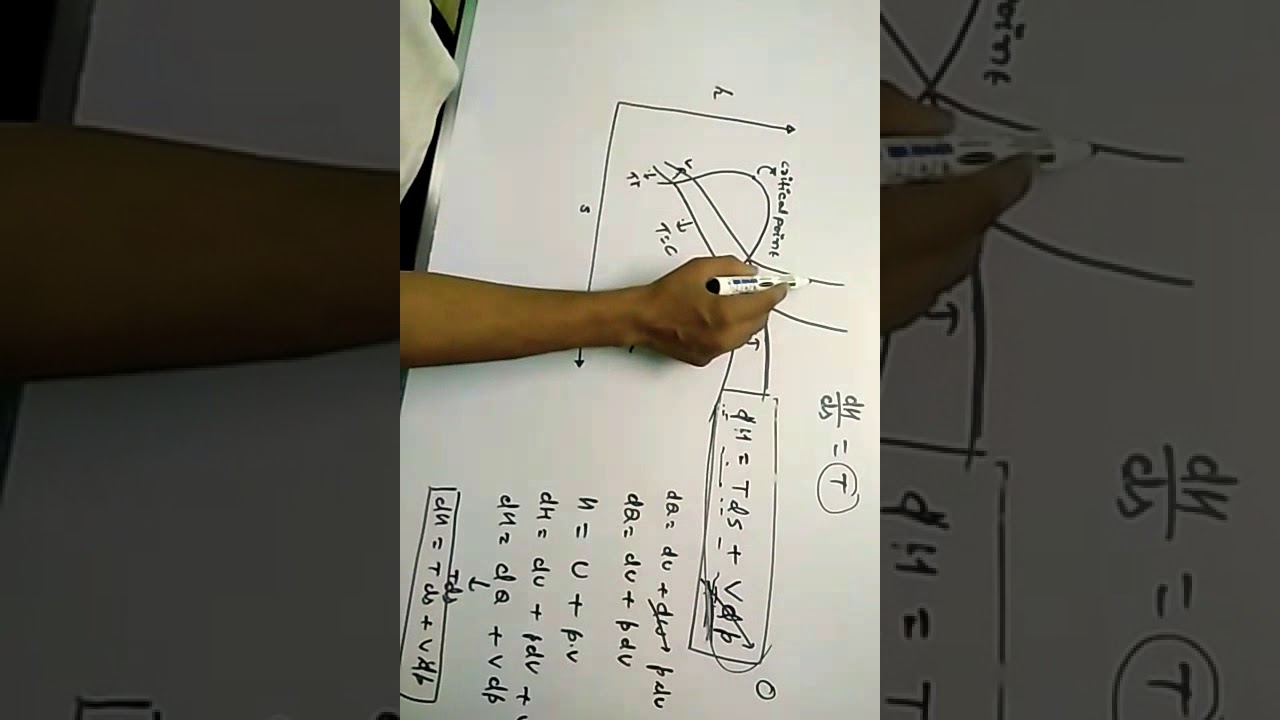 h
critical point
T=C
s
dH/ds = T
dH = Tds + Vdp
0
dQ = du + dw → pdv
dQ = du + pdv
H = U + P.V
dH = du + pdv +
dH = dQ + vdp
Tds
dH = Tds + vdp